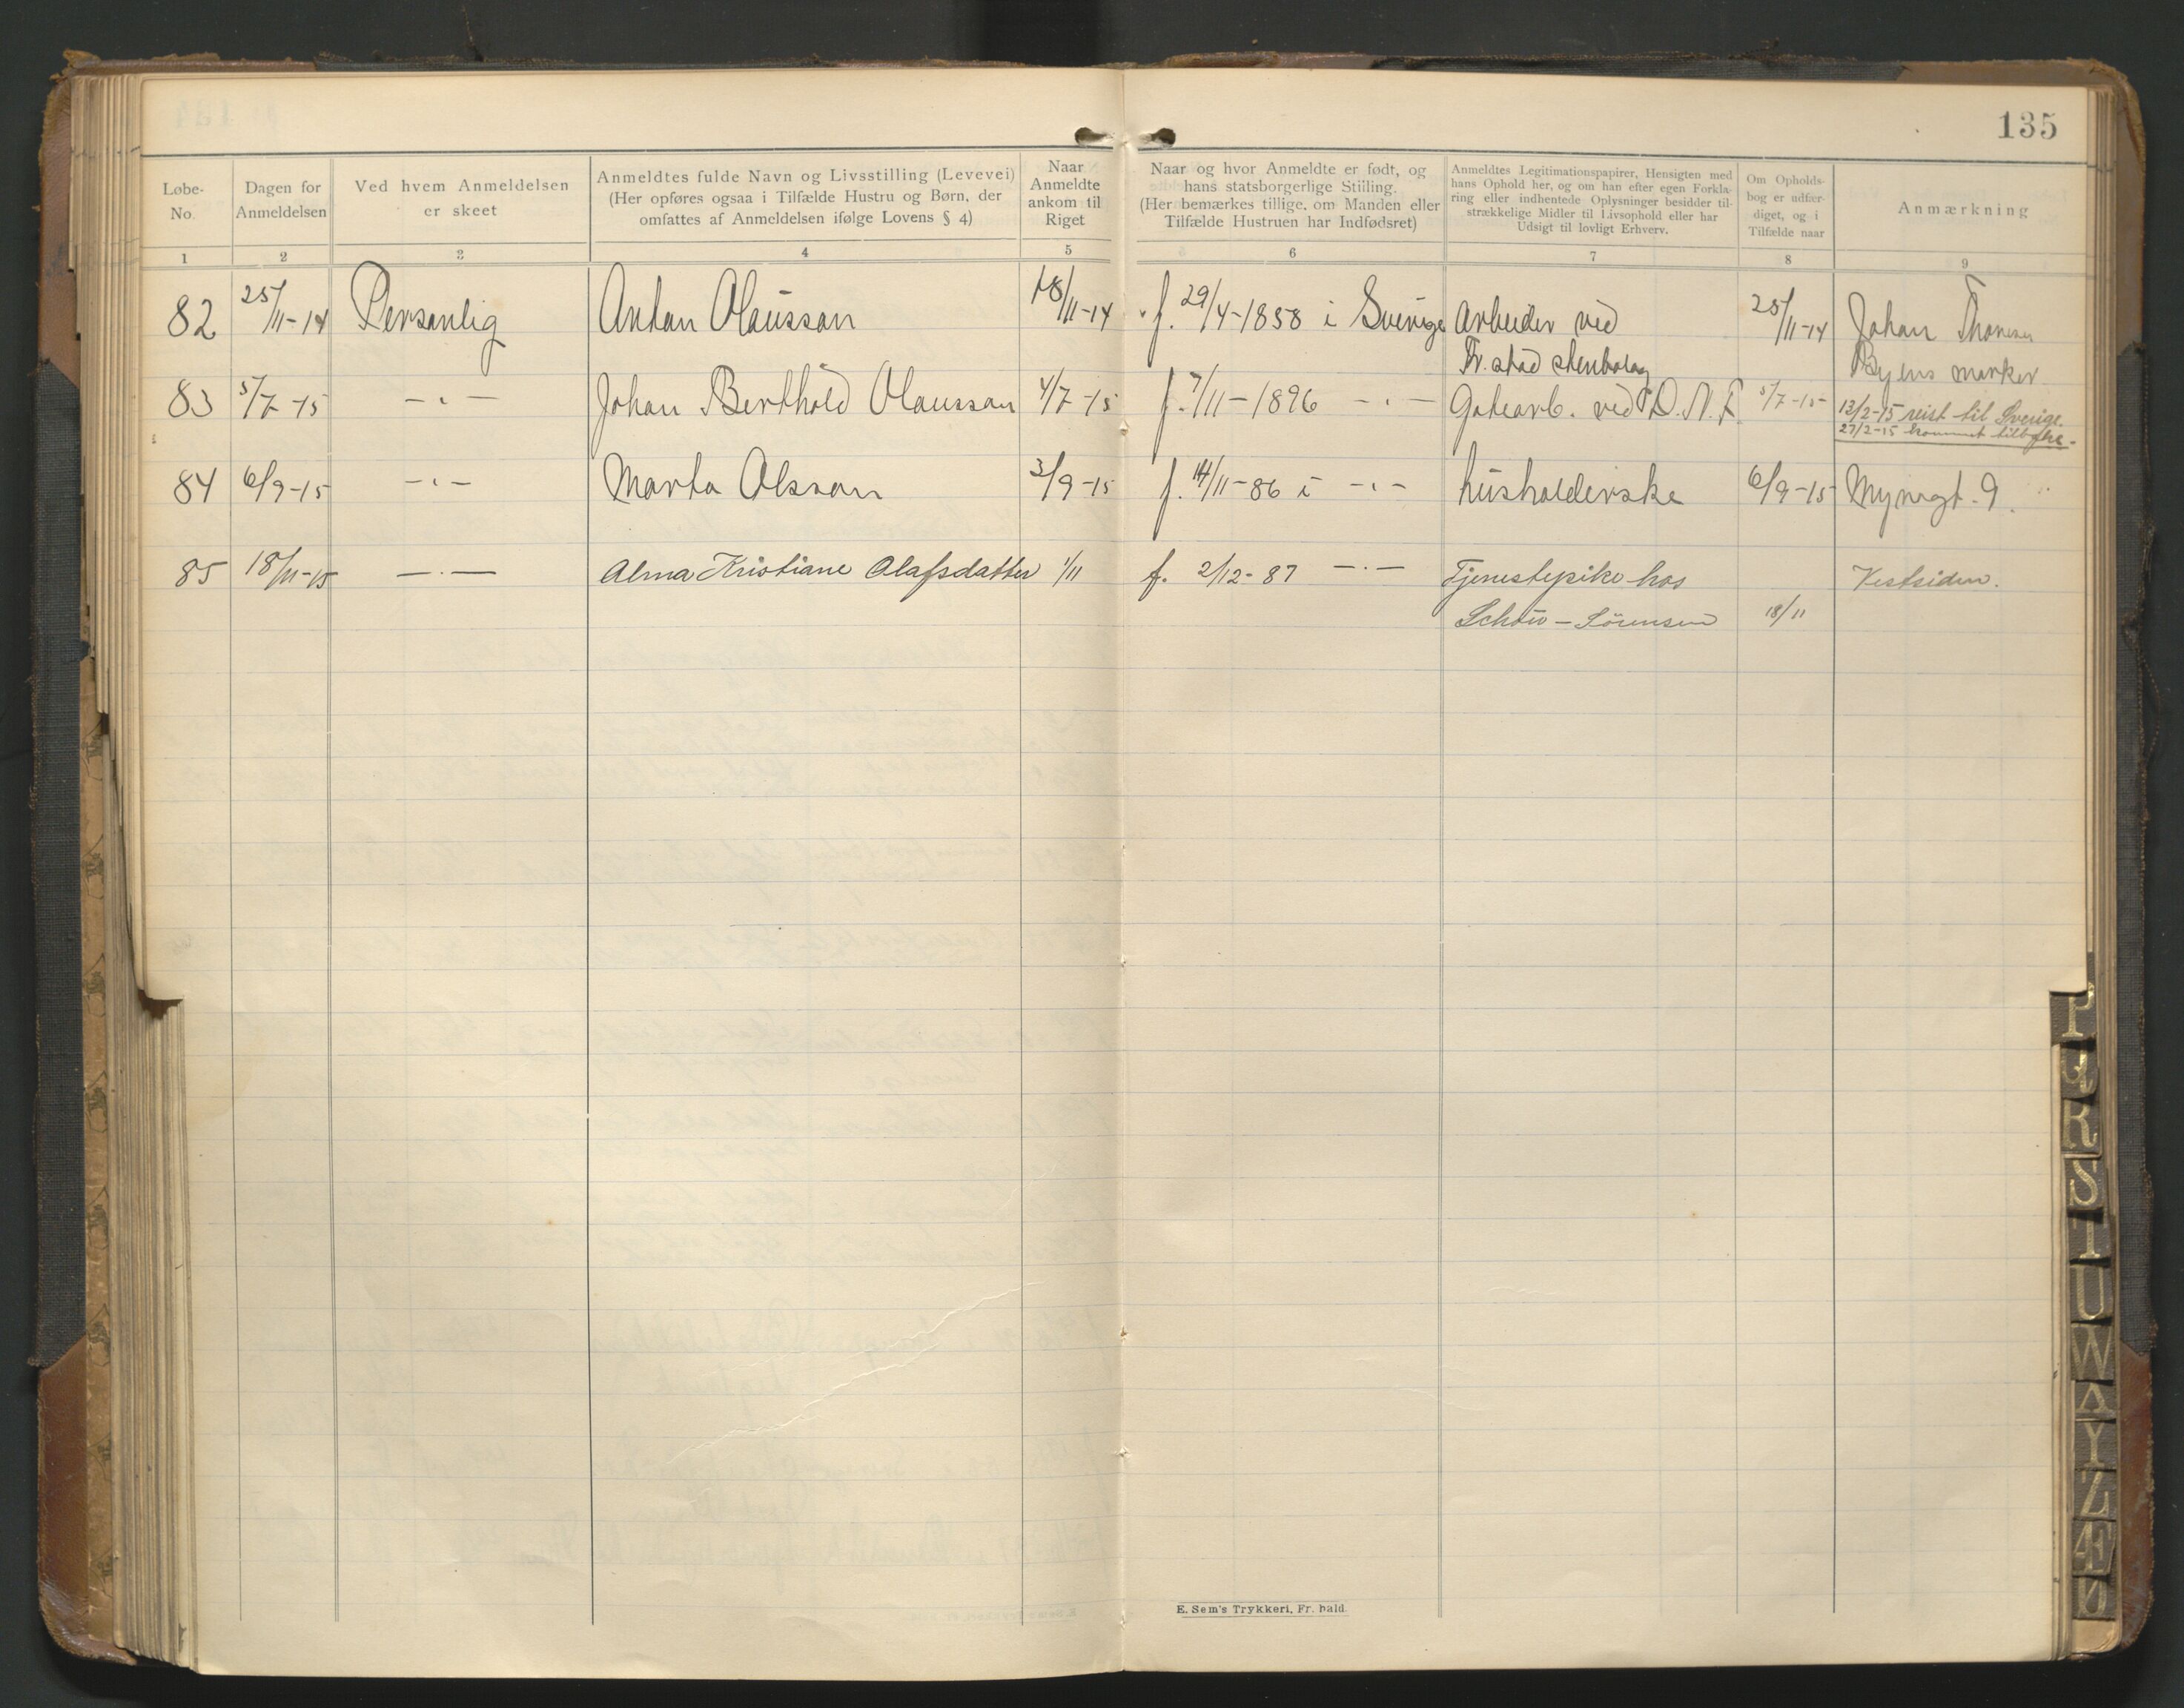 135
Løbe-
No.
Dagen for
Anmeldelsen
Ved hvem Anmeldelsen
er skeet
Anmeldtes fulde Navn og Livsstilling (Levevei)
(Her opføres ogsaa i Tilfælde Hustru og Børn, der
omfattes af Anmeldelsen ifølge Lovens § 4)
Naar
Anmeldte
ankom til
Riget
Naar og hvor Anmeldte er født, og
hans statsborgerlige Stilling.
(Her bemærkes tillige, om Manden eller
Tilfælde Hustruen har Indfødsret)
Anmeldtes Legitimationspapirer, Hensigten med
hans Ophold her, og om han efter egen Forkla-
ring eller indhentede Oplysninger besidder til-
strækkelige Midler til Livsophold eller har
Udsigt til lovligt Erhverv.
Om Opholds-
bog er udfær-
diget, og i
Tilfælde naar
Anmærkning
1 2 3 4 5 6 7 8 9
82 25/11-14 Personlig Anton Olausson 18/11-14 f. 29/4-1858 i Sverige Arbeider ved 25/11-14 Johan
Fr.stad stenholag Byens marker
83 5/7-15 -"- Johan Berthold Olausson 4/7-15 f. 7/11-1896 -"- Gatearb. ved D. N. F. 5/7-15 13/2-15 reist til Sverige.
27/2-15 kommet tilbake.
84 6/9-15 -"- Marta Olsson 3/9-15 f. 14/11-86 i -"- husholderske 6/9-15 9
85 18/11-15 -"- Alma Kristiane Olafsdatter 1/11 f. 2/12-87 -"- Tjenestepike hos Vestsiden.
Schou-Sørensen 18/11
E. Sem's Trykkeri, Fr.hald.
P
Q
R
S
T
U
W
Y
Z
Æ
Ø